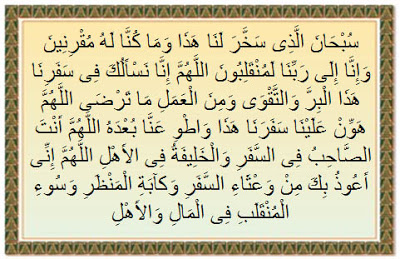 سُبْحَانَ الَّذِى سَخَّرَ لَنَا هَذَا وَمَا كُنَّا لَهُ مُقْرِنِينَ
وَإِنَّا إِلَى رَبِّنَا لَمُنْقَلِبُونَ اللَّهُمَّ إِنَّا نَسْأَلُكَ فِى سَفَرِنَا
هَذَا الْبِرَّ وَالتَّقْوَى وَمِنَ الْعَمَلِ مَا تَرْضَى اللَّهُمَّ
هَوِّنْ عَلَيْنَا سَفَرَنَا هَذَا وَاطْوِ عَنَّا بُعْدَهُ اللَّهُمَّ أَنْتَ
الصَّاحِبُ فِى السَّفَرِ وَالْخَلِيفَةُ فِى الأَهْلِ اللَّهُمَّ إِنِّى
أَعُوذُ بِكَ مِنْ وَعْثَاءِ السَّفَرِ وَكَآبَةِ الْمَنْظَرِ وَسُوءِ
الْمُنْقَلَبِ فِى الْمَالِ وَالأَهْلِ